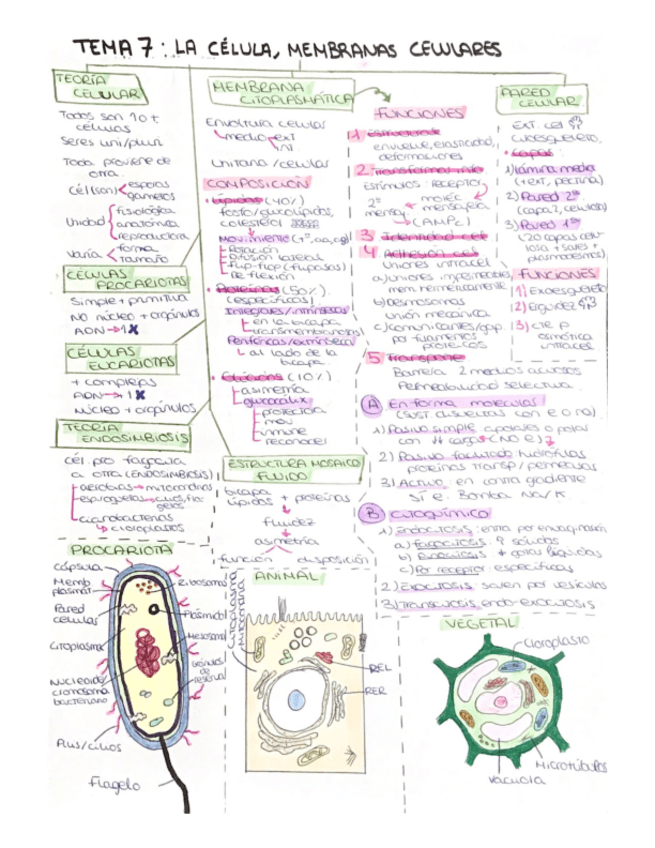 TEMA 7: LA CÉLULA, MEMBRANAS CELULARES
TEORÍA
CELULAR
Todos son 1 o +
células
Seres uni/pluri
Toda proviene de
otra.
Cél (son)
esporas
gametos
Unidad
fisiológica
anatómica
reproductora
Varía
forma
tamaño
CÉLULAS
PROCARIOTAS
Simple + primitiva
No núcleo + orgánulos
ADN → 1
CÉLULAS
EUCARIOTAS
+ complejas
ADN → 1
Núcleo + orgánulos
TEORÍA
ENDOSIMBIOSIS
cél pro fagocita
a otra (ENDOSIMBIOSIS)
aerobias → mitocondrias
espiroquetas → cilios, fla-
gelos
cianobacterias
↳ cloroplastos
MEMBRANA
CITOPLASMÁTICA
Envoltura celular
medio
ext
int
Unitaria/celular
COMPOSICIÓN
• Lípidos (40%)
fosfo/glucolípidos,
colesterol
Rotación
Difusión lateral
Flip-flop (flipasas)
De flexión
• Proteínas (50%)
(específicas)
Integrales/intrínsecas
en la bicapa
transmembranosas
Periféricas/extrínsecas
al lado de la
bicapa
(10%)
asimetría
glucocálix
protectora
mov
inmune
reconocer
ESTRUCTURA MOSAICO
FLUIDO
bicapa
lípidos + proteínas
fluidez
asimetría
función disposición
FUNCIONES
1 Estructural
envuelve, elasticidad,
deformaciones
2 Transforma info
Estímulos: receptor
2º
mensaj.
moléc
mensajera
(AMPc)
3 Identidad cel
4 Adhesión cel
Uniones intracel
a) uniones impermeables
mem herméticamente
b) desmosomas
unión mecánica
c) comunicantes/gap
por filamentos
proteicos
5 Transporte
Barrera 2 medios acuosos
Permeabilidad selectiva
A En forma moléculas
(sust. disueltas con e o no)
1) Pasivo simple: apolares o polar
con ↓↓ carga (NO e)
2) Pasivo facilitado: hidrófilas
proteínas transp/permeasas
3) Activo: en contra gradiente
Sí e. Bomba Na/K
B CITOQUÍMICO
1) ENDOCITOSIS: entra por envaginación
a) FAGOCITOSIS: sólidos
b) PINOCITOSIS: gotas líquidas
c) Por receptor: específicas
2) EXOCITOSIS: salen por vesículas
3) TRANSCITOSIS: endo-exocitosis
PARED
CELULAR
EXT. cel
exoesqueleto
• capas:
1) Lámina media
(+ ext, pectina)
2) Pared 2ª
(capa 2, celulosa)
3) Pared 1ª
(20 capas celu-
losa + sales +
plasmodesmos)
FUNCIONES
1) Exoesqueleto
2) Erguidez
3) cte p
osmótica
intracel
PROCARIOTA
cápsula
Memb
plasmát
Pared
celular
Citoplasma
Nucleoide
cromosoma
bacteriano
Pilus/cilios
Flagelo
Ribosoma
Plásmido
Mesosoma
Gránulos
de
reserva
ANIMAL
Citoplasma
Mitocondria
REL
RER
VEGETAL
Cloroplasto
Microtúbulos
Vacuola